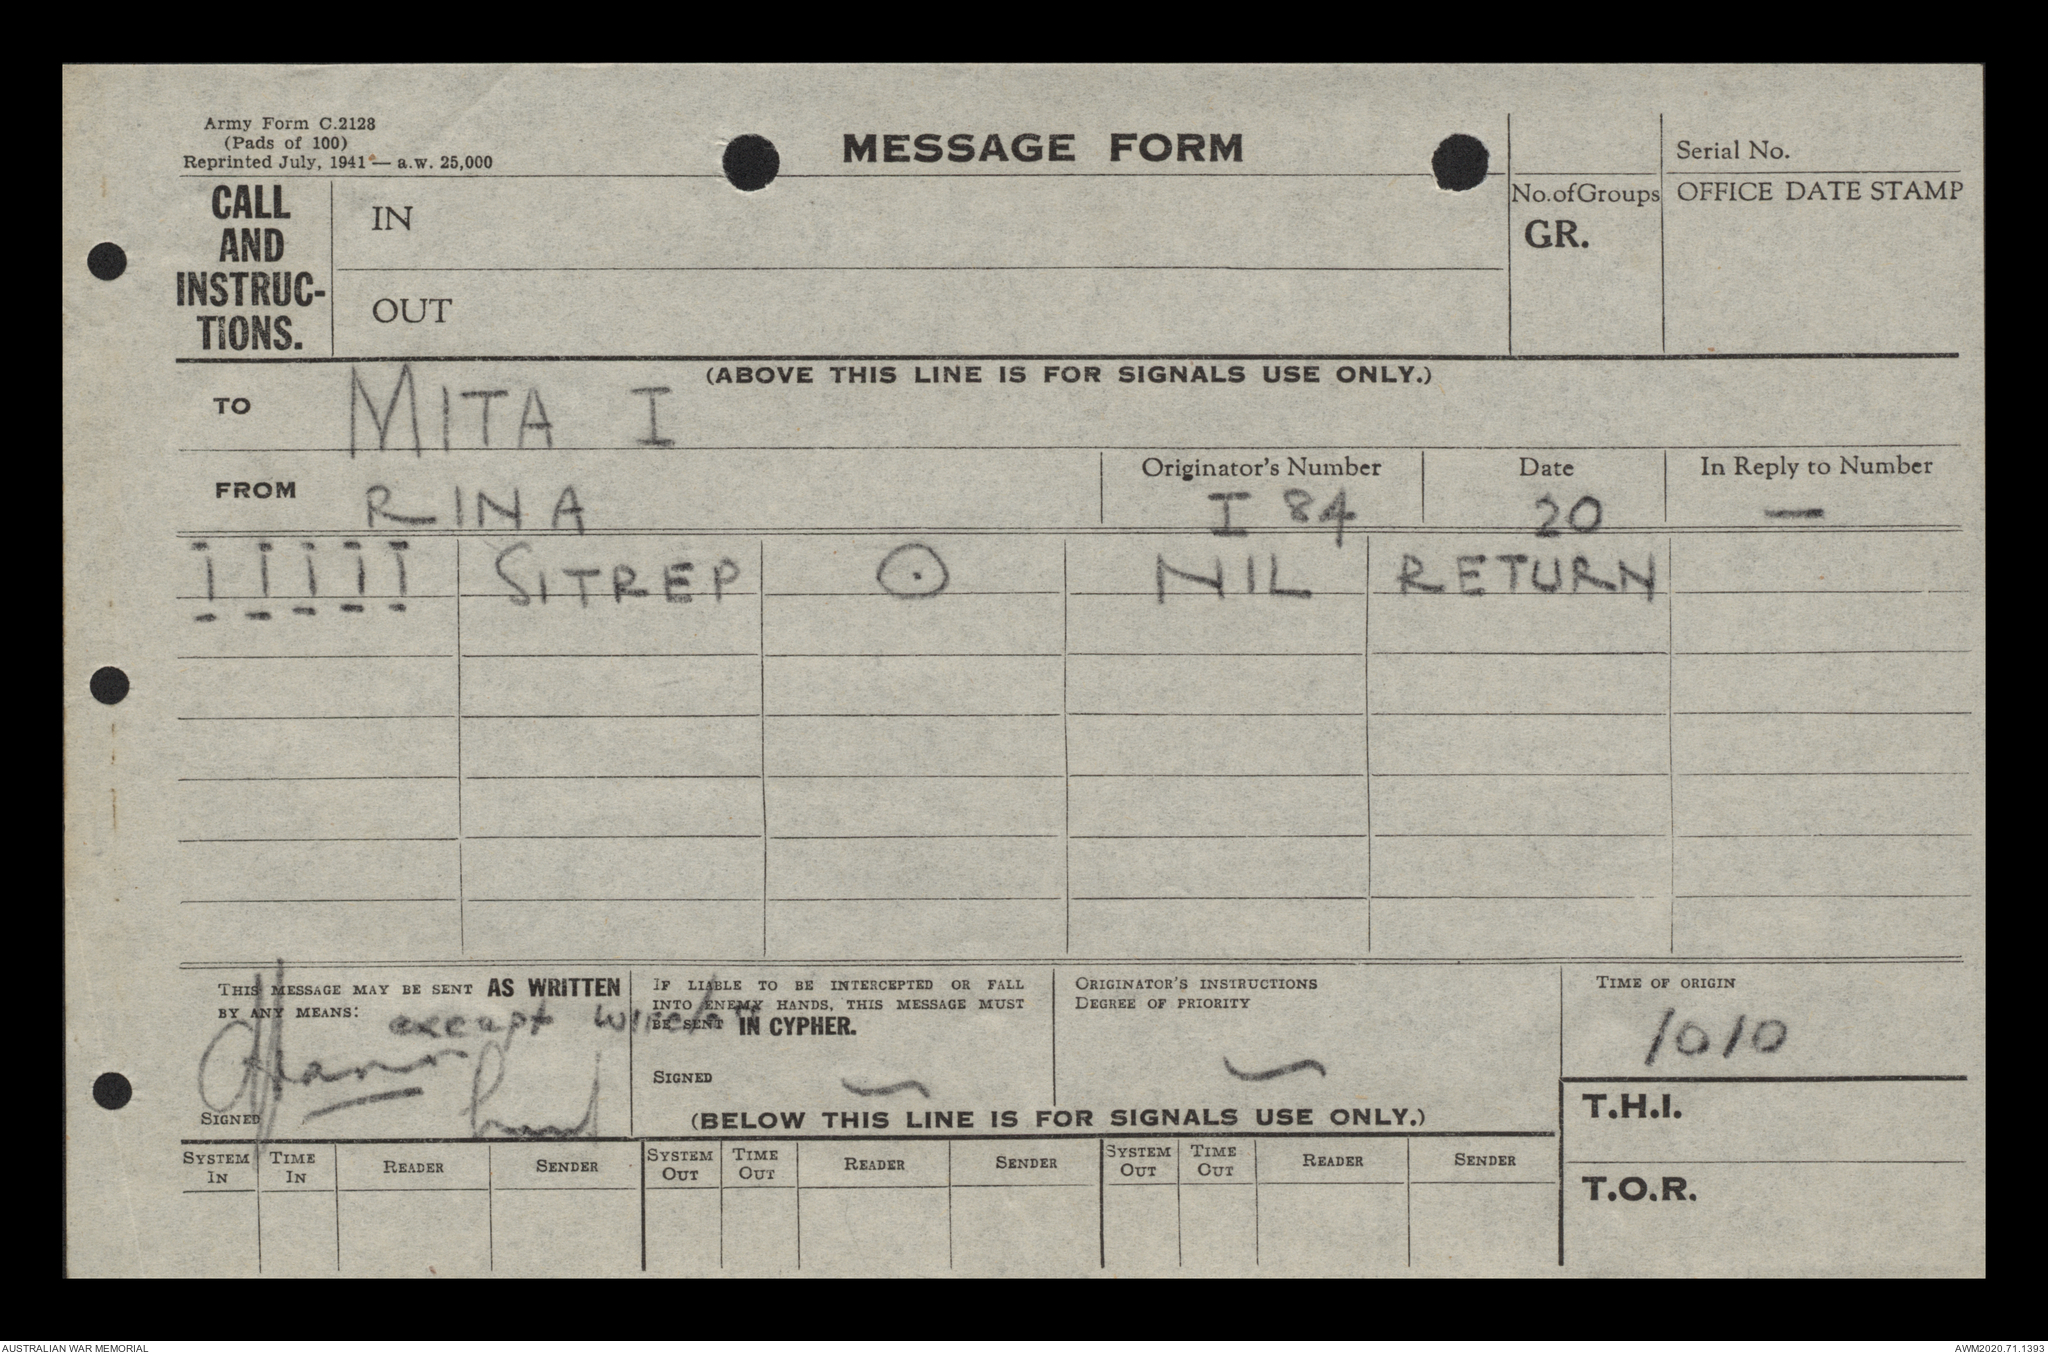 Army Form C.2128
(Pads of 100)
Reprinted July, 1941 — a.w. 25,000
MESSAGE FORM
Serial No.
CALL AND INSTRUC-TIONS.
IN
OUT
No. of Groups
GR.
OFFICE DATE STAMP
(ABOVE THIS LINE IS FOR SIGNALS USE ONLY.)
TO MITA I
FROM RINA
Originator's Number I 84
Date 20
In Reply to Number —
I I I I I SITREP ⊙ NIL RETURN
THIS MESSAGE MAY BE SENT AS WRITTEN
BY ANY MEANS: except wireless
SIGNED
IF LIABLE TO BE INTERCEPTED OR FALL
INTO ENEMY HANDS, THIS MESSAGE MUST
BE SENT IN CYPHER.
SIGNED —
ORIGINATOR'S INSTRUCTIONS
DEGREE OF PRIORITY
—
TIME OF ORIGIN
1010
T.H.I.
T.O.R.
(BELOW THIS LINE IS FOR SIGNALS USE ONLY.)
SYSTEM IN TIME IN READER SENDER SYSTEM OUT TIME OUT READER SENDER SYSTEM OUT TIME OUT READER SENDER
AUSTRALIAN WAR MEMORIAL
AWM2020.71.1393